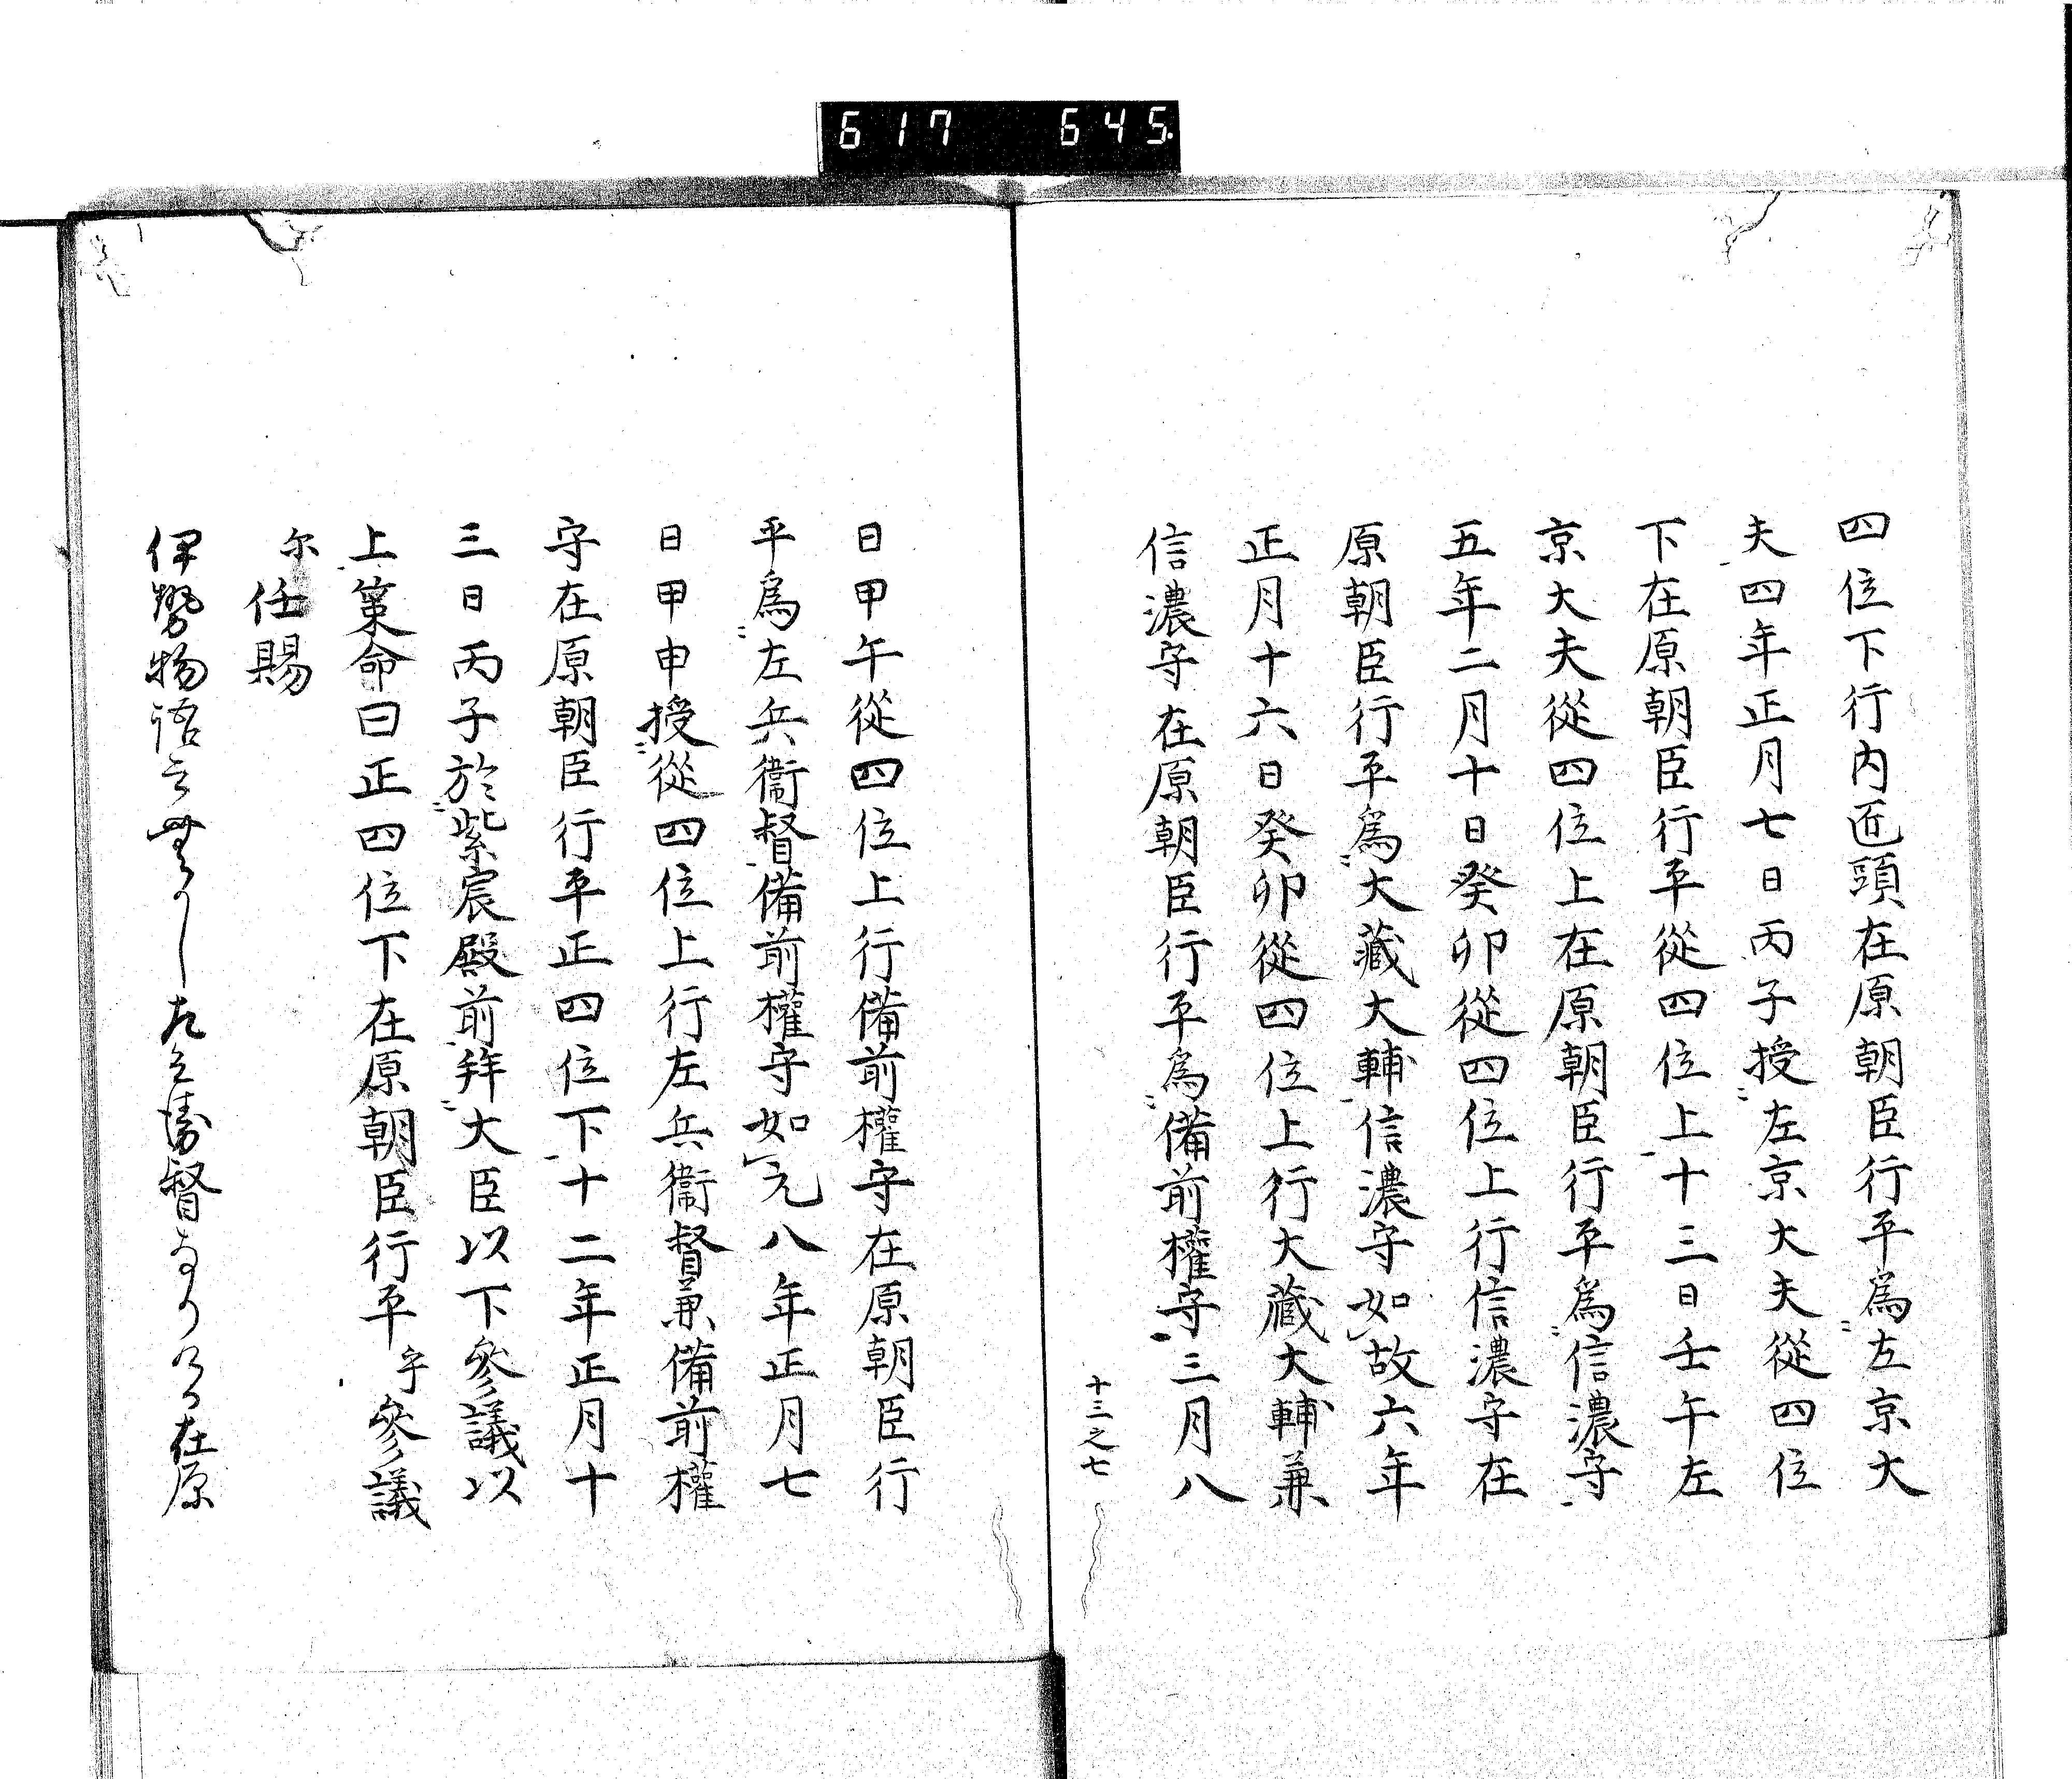 617 645
四位下行内匠頭在原朝臣行平爲左京大
夫四年正月七日丙子授左京大夫從四位
下在原朝臣行平從四位上十三日壬午左
京大夫從四位上在原朝臣行平爲信濃守
五年二月十日癸卯從四位上行信濃守在
原朝臣行平爲大藏大輔信濃守如故六年
正月十六日癸卯從四位上行大藏大輔兼
信濃守在原朝臣行平爲備前權守三月八
十三之七
日甲午從四位上行備前權守在原朝臣行
平爲左兵衞督備前權守如元八年正月七
日甲申授從四位上行左兵衞督兼備前權
守在原朝臣行平正四位下十二年正月十
三日丙子於紫宸殿前拜大臣以下參議以
上策命曰正四位下在原朝臣行平乎參議
尓任賜
伊勢物語云むかし左兵衛督なりける在原